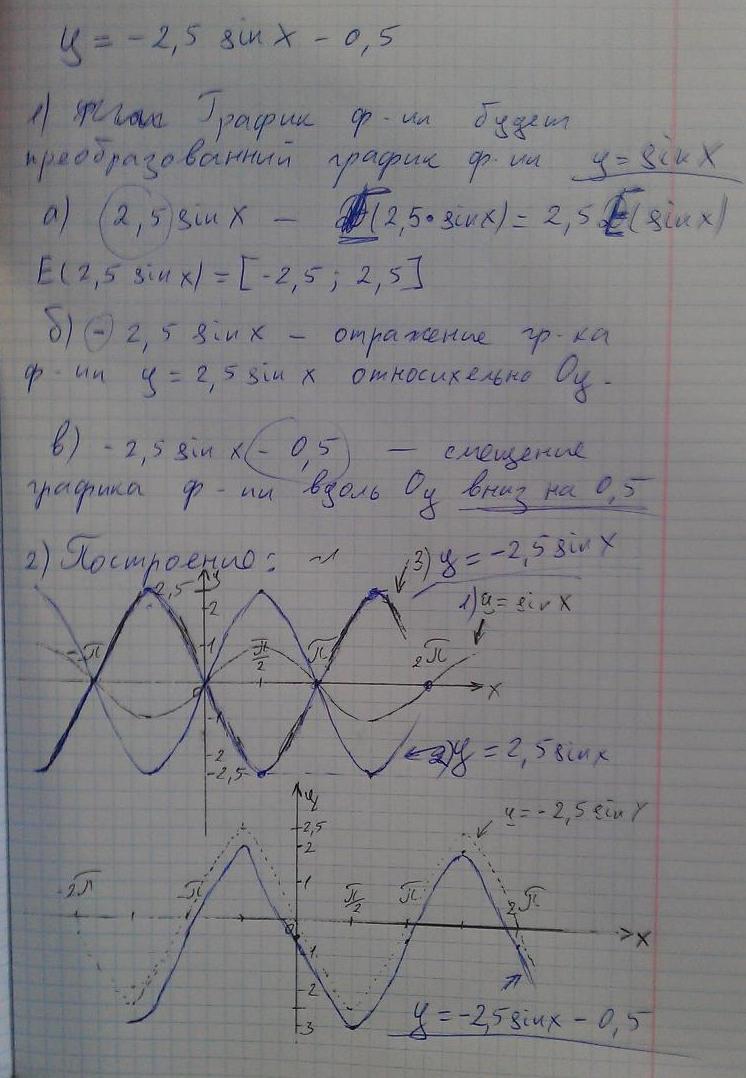 y = -2,5 sin x - 0,5
1) График ф-ии будет
преобразованний график ф-ии y = sin x
а) 2,5 sin x - E(2,5 · sin x) = 2,5 E(sin x)
E(2,5 sin x) = [-2,5 ; 2,5]
б) - 2,5 sin x - отражение гр-ка
ф-ии y = 2,5 sin x относительно Oy.
в) - 2,5 sin x - 0,5 - смещение
графика ф-ии вдоль Oy вниз на 0,5
2) Построение:
3) y = -2,5 sin x
1) y = sin x
y
2,5
2
1
-π
π/2
π
2π
x
-1
-2
-2,5
2) y = 2,5 sin x
y
2,5
2
1
y = -2,5 sin x
-2π
-π
0
π/2
π
2π
x
1
2
3
y = -2,5 sin x - 0,5